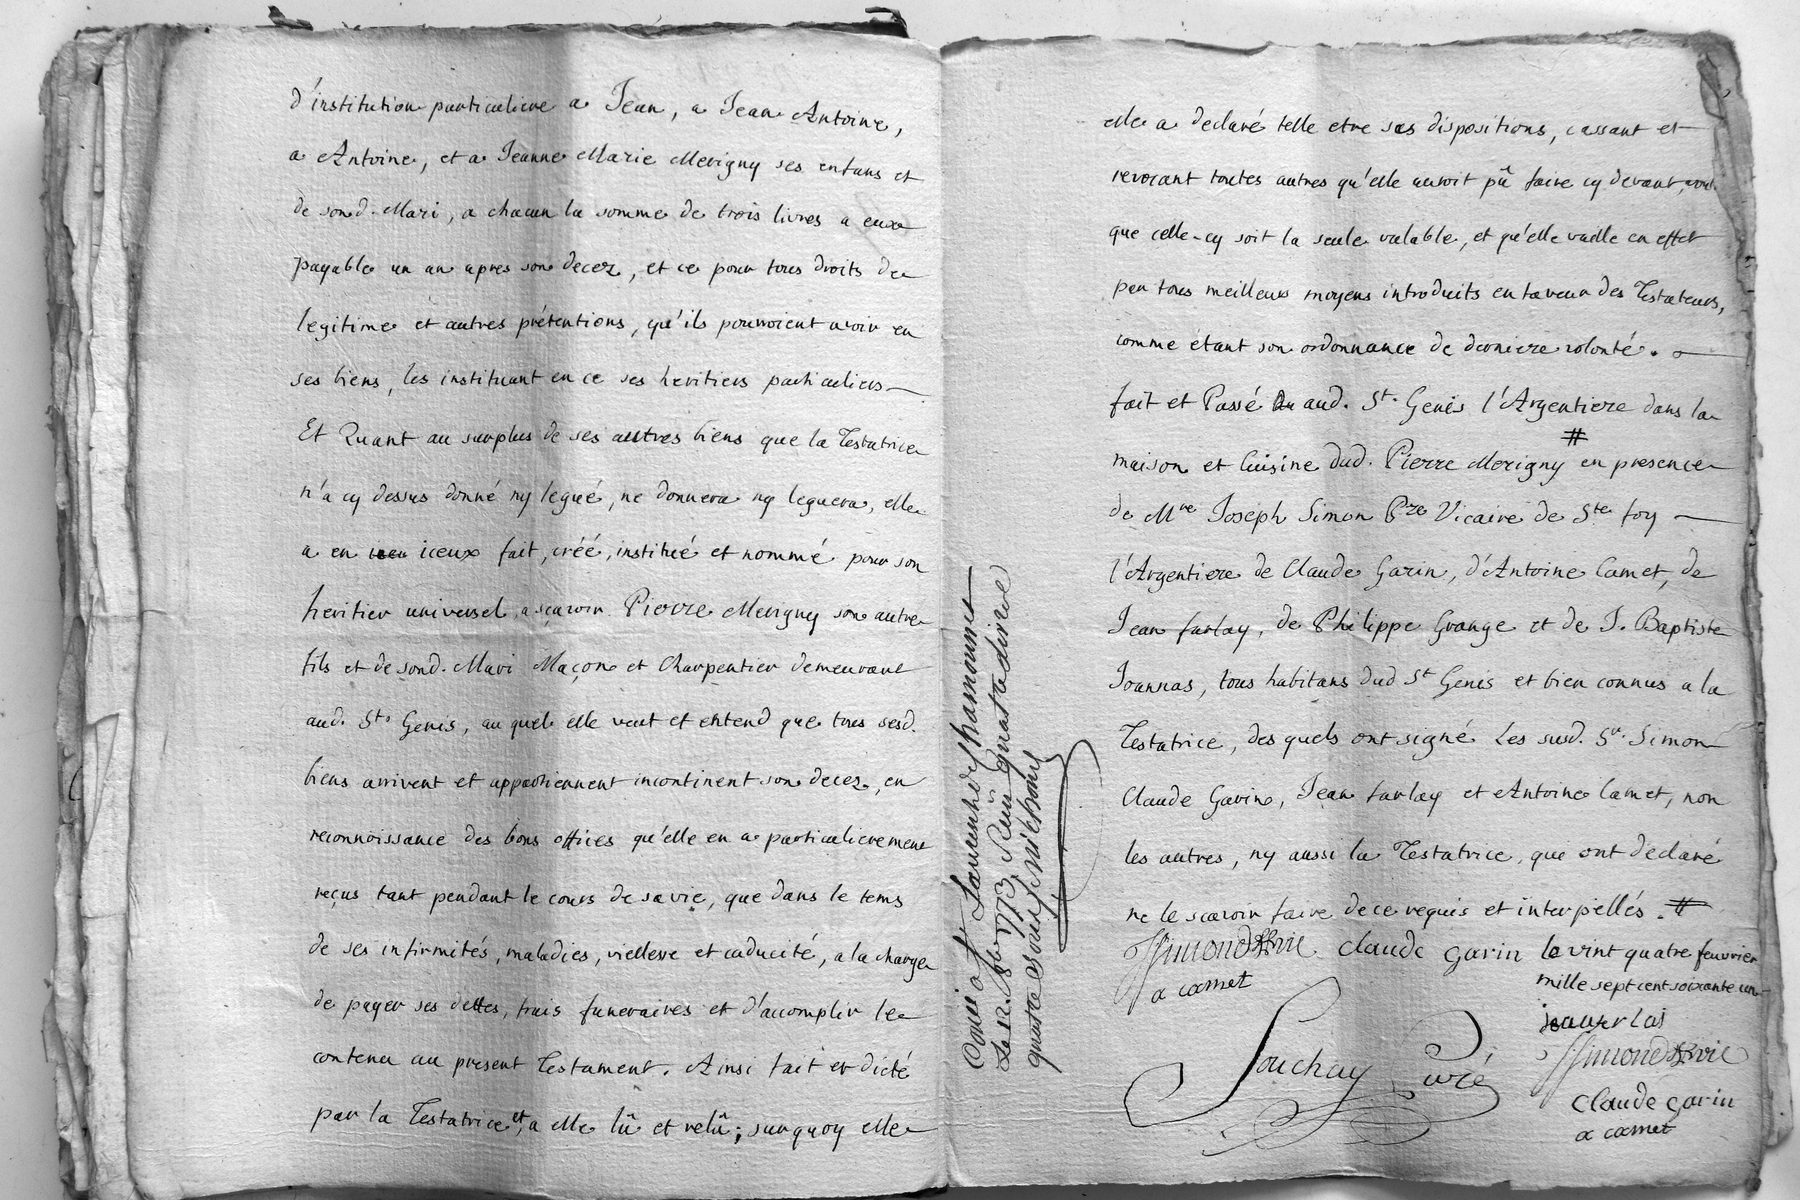 d'institution particuliere a Jean, a Jean Antoine,
a Antoine, et a Jeanne Marie Merigny ses enfans et
de sond. Mari, a chacun la somme de trois livres a eux
payable un an apres son decez, et ce pour tous droits de
legitime et autres prétentions, qu'ils pourroient avoir en
ses biens, les instituant en ce ses heritiers particuliers
Et Quant au surplus de ses autres biens que la Testatrice
n'a cy dessus donné ny legué, ne donnera ny leguera, elle
a en iceux fait, créé, institué et nommé pour son
heritier universel, a scavoir Pierre Merigny son autre
fils et de sond. Mari Maçon et Charpentier demeurant
aud. St. Genis, au quel elle veut et entend que tous sesd.
biens arrivent et appartiennent incontinent son decez, en
reconnoissance des bons offices qu'elle en a particulierement
reçus tant pendant le cours de sa vie, que dans le tems
de ses infirmités, maladies, viellesse et caducité, a la charge
de payer ses dettes, frais funeraires et d'accomplir le
contenu au present Testament. Ainsi fait et dicté
par la Testatrice et, a elle lû et relû; sur quoy elle
Le 12. 1773.
elle a declaré telle etre ses dispositions, cassant et
revocant toutes autres qu'elle auroit pû faire cy devant,
que celle-cy soit la seule valable, et qu'elle vaille en effet
par tous meilleurs moyens introduits en faveur des Testateurs,
comme étant son ordonnance de derniere volonté.
fait et Passé aud. St. Genis l'Argentiere dans la
maison et Cuisine dud. Pierre Merigny # en presence
de Mre Joseph Simon Ptre Vicaire de Ste foy
l'Argentiere de Claude Garin, d'Antoine Camet, de
Jean farlay, de Philippe Grange et de J. Baptiste
Joannas, tous habitans dud St Genis et bien connus a la
Testatrice, des quels ont signé Les susd. Sr. Simon
Claude Garin, Jean farlay et Antoine Camet, non
les autres, ny aussi la Testatrice, que ont declaré
ne le scavoir faire de ce requis et interpellés. #
Simond claude garin le vint quatre feuvrier
a camet mille sept cent soixante un
Souchay Curé
Simond
claude garin
a camet